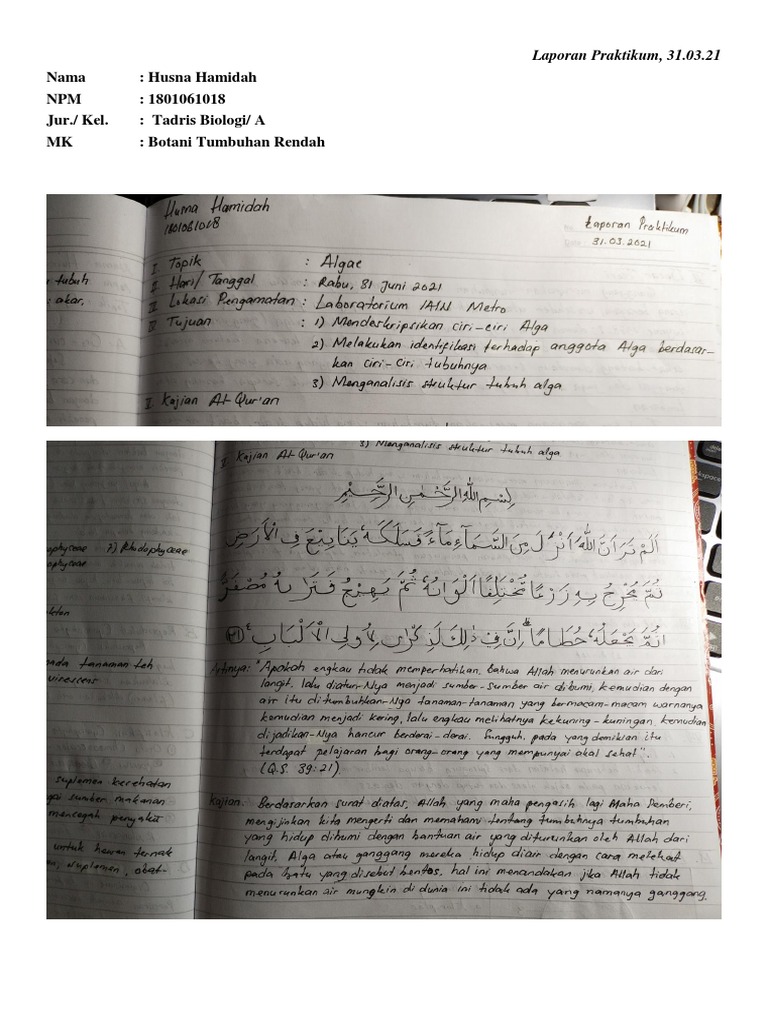 Laporan Praktikum, 31.03.21
Nama : Husna Hamidah
NPM : 1801061018
Jur./ Kel. : Tadris Biologi/ A
MK : Botani Tumbuhan Rendah
Husna Hamidah
1801061018
Laporan Praktikum
31.03.2021
I Topik : Algae
II Hari/ Tanggal : Rabu, 31 Juni 2021
III Lokasi Pengamatan : Laboratorium IAIN Metro
IV Tujuan : 1) Mendeskripsikan ciri-ciri Alga
2) Melakukan identifikasi terhadap anggota Alga berdasar-
kan ciri-ciri tubuhnya
3) Menganalisis struktur tubuh alga
V. Kajian Al-Qur'an
tubuh
akar,
3) Menganalisis struktur tubuh alga
V. Kajian Al-Qur'an
بِسْمِ اللهِ الرَّحْمٰنِ الرَّحِيْمِ
اَلَمْ تَرَ اَنَّ اللهَ اَنْزَلَ مِنَ السَّمَآءِ مَآءً فَسَلَكَهٗ يَنَابِيْعَ فِى الْاَرْضِ
ثُمَّ يُخْرِجُ بِهٖ زَرْعًا مُّخْتَلِفًا اَلْوَانُهٗ ثُمَّ يَهِيْجُ فَتَرٰىهُ مُصْفَرًّا
ثُمَّ يَجْعَلُهٗ حُطَامًا ۗ اِنَّ فِيْ ذٰلِكَ لَذِكْرٰى لِاُولِى الْاَلْبَابِ ﴿٢١﴾
Artinya: "Apakah engkau tidak memperhatikan, bahwa Allah menurunkan air dari
langit, lalu diatur-Nya menjadi sumber-sumber air dibumi, kemudian dengan
air itu ditumbuhkan-Nya tanaman-tanaman yang bermacam-macam warnanya
kemudian menjadi kering, lalu engkau melihatnya kekuning-kuningan, kemudian
dijadikan-Nya hancur berderai-derai. Sungguh, pada yang demikian itu
terdapat pelajaran bagi orang-orang yang mempunyai akal sehat".
(Q.S. 39:21).
Kajian: Berdasarkan surat diatas, Allah yang maha pengasih lagi Maha Pemberi,
mengijinkan kita mengerti dan memahami tentang tumbuhnya tumbuhan
yang hidup dibumi dengan bantuan air yang diturunkan oleh Allah dari
langit. Alga atau ganggang mereka hidup diair dengan cara melekat
pada batu yang disebut bentos, hal ini menandakan jika Allah tidak
menurunkan air mungkin di dunia ini tidak ada yang namanya ganggang.
ophyceae 7) Rhodophyceae
ophyceae
pada tanaman teh
virescens
suplemen kesehatan
sumber makanan
mencegah penyakit
untuk hewan ternak
suplemen, obat-